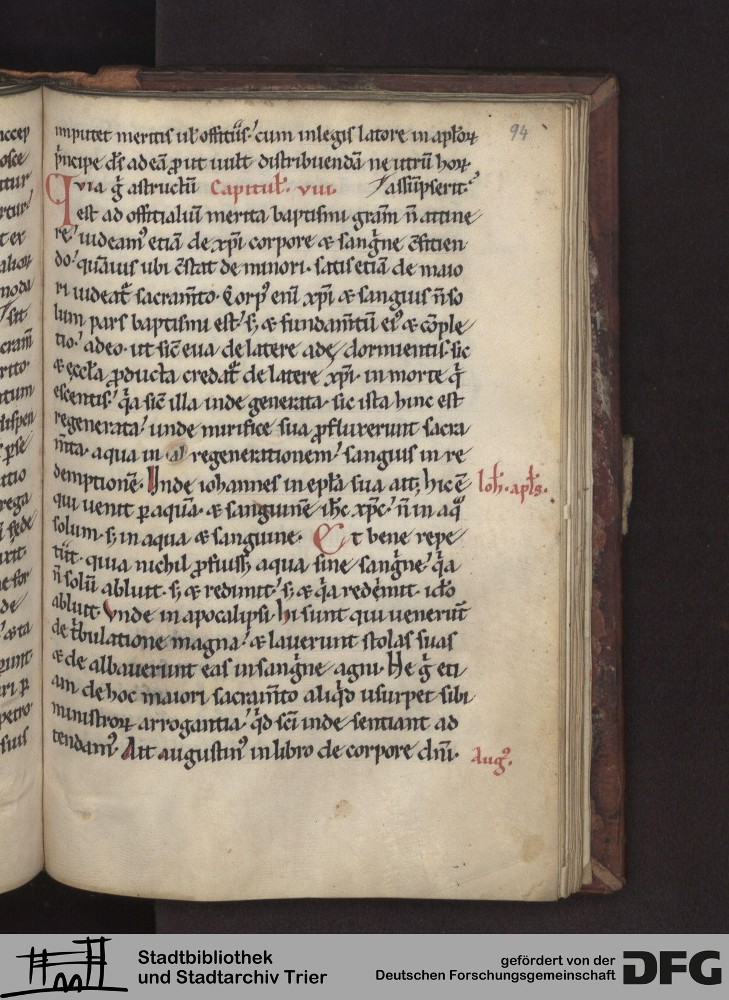 94
imputet meritis ul' offitiis: cum in legis latore in aptor
p̃ncipe d̃s ad eã, put uult distribuendã ne utrũ hor
Quia g̃ astructũ Capitul'. VIII. assũpserit.
est ad offitialiũ merita baptismi gram̃ ñ attine
re: uideam᷒ etiã de xp̃i corpore & sang̃ne c̃fitien
do: quãuis ubi c̃stat de minori. satis etiã de maio
ri uideat̃ sacram̃to. Corp᷒ eni xp̃i & sanguis ñ so
lum pars baptismi est: s; & fundam̃tũ ei᷒ & cõple
tio: adeo. ut sic̃ eua de latere ade dormientis. sic
& eccl'a p̃ducta credat̃ de latere xp̃i. in morte q̃
escentis: q̃a sic̃ illa inde generata. sic ista hinc est
regenerata: unde mirifice sua p̃fluxerunt sacra
m̃ta. aqua in regenerationem: sanguis in re
demptionẽ. Unde iohannes in ep̃la sua ait; hic ẽ
Ioh. apl's.
qui uenit p aquã. & sanguinẽ ih̃c xp̃c: ñ in aq̃
solum. s; in aqua & sanguine. Et bene repe
tiit. quia nichil p̃fuiss; aqua sine sang̃ne: q̃a
ñ solũ abluit. s; & redimit: s; & q̃a redẽmit. ido
abluit Vnde in apocalipsi. hi sunt qui ueneruñt
de t̃bulatione magna: & lauerunt stolas suas
& de albauerunt eas in sang̃ne agni. Ne g̃ eti
am de hoc maiori sacram̃to aliq̃d usurpet sibi
ministror arrogantia: q̃d sc̃i inde sentiant ad
tendam᷒. Ait augustin᷒ in libro de corpore dñi.
Aug᷒.
Stadtbibliothek
und Stadtarchiv Trier
gefördert von der
Deutschen Forschungsgemeinschaft
DFG